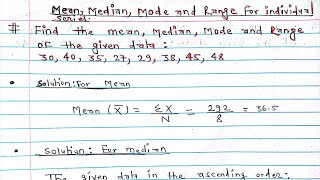 Mean, Median, Mode and Range For individual
series:
# Find the mean, Median, Mode, and Range
of the given data:
30, 40, 35, 27, 29, 38, 45, 48
• Solution: For Mean
Mean (X̄) = ΣX/N - 292/8 = 36.5
• Solution: For median
The given data in the ascending order: